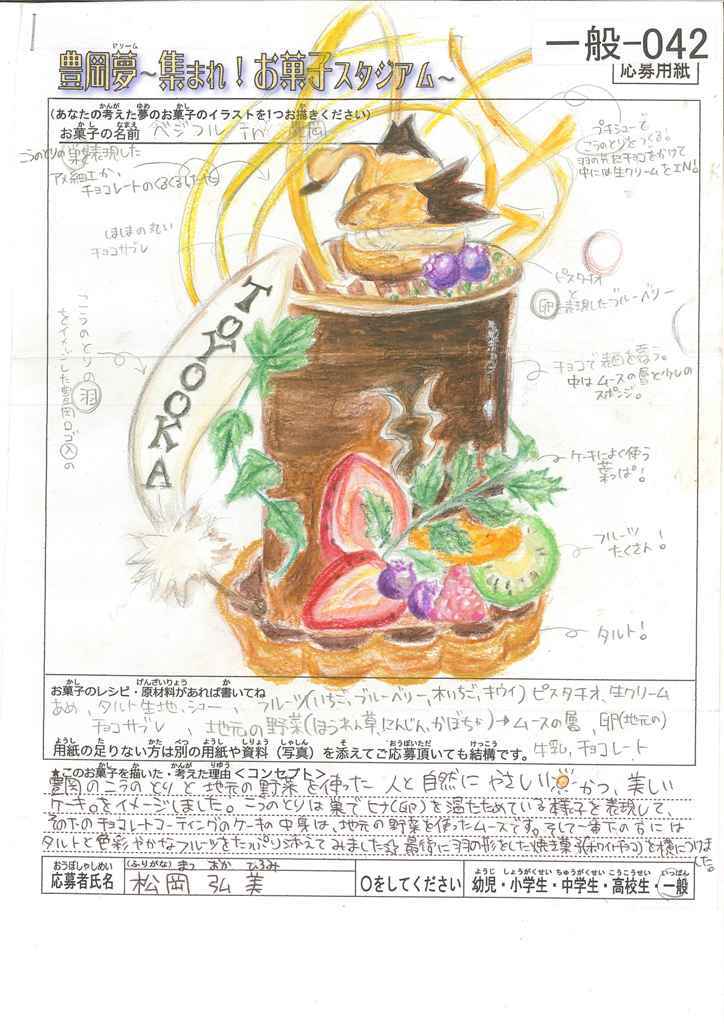 一般-042
応募用紙
豊岡夢～集まれ！お菓子スタジアム～
ドリーム
(あなたの考えた夢のお菓子のイラストを1つお描きください)
お菓子の名前 ベジフル in 豊岡
こうのとりの巣を表現した
アメ細工か、
チョコレートのくるくるしたやつ
プチシューで
こうのとりをつくる。
羽の先にチョコをかけて
中には生クリームをIN!
ほしほの丸い
チョコサブレ
ピスタチオ
と
卵を表現したブルーベリー
こうのとりの羽
をイメージした豊岡ロゴ入の
TOYOOKA
チョコで表面を覆う。
中はムースの層と少しの
スポンジ。
ケーキによく使う
葉っぱ！
フルーツ
たくさん！
タルト！
お菓子のレシピ・原材料があれば書いてね
フルーツ(いちご、ブルーベリー、木いちご、キウイ) ピスタチオ、生クリーム
あめ、タルト生地、シュー、
チョコサブレ、地元の野菜(ほうれん草、にんじん、かぼちゃ)→ムースの層、卵(地元の)
用紙の足りない方は別の用紙や資料（写真）を添えてご応募頂いても結構です。 牛乳、チョコレート
★このお菓子を描いた・考えた理由＜コンセプト＞
豊岡のこうのとりと地元の野菜を使った人と自然にやさしいかつ、美しい
ケーキ。をイメージしました。こうのとりは巣でヒナ(卵)を温たためている様子を表現して、
その下のチョコレートコーティングのケーキの中身は、地元の野菜を使ったムースです。そして一番下の方には
タルトと色彩やかなフルーツをたっぷり添えてみました☆ 最後に羽の形をした焼き菓子(ホワイトチョコ)を横につけました。
おうぼしゃしめい
応募者氏名
(ふりがな) まつ おか ひろみ
松岡 弘美
○をしてください
幼児・小学生・中学生・高校生・一般